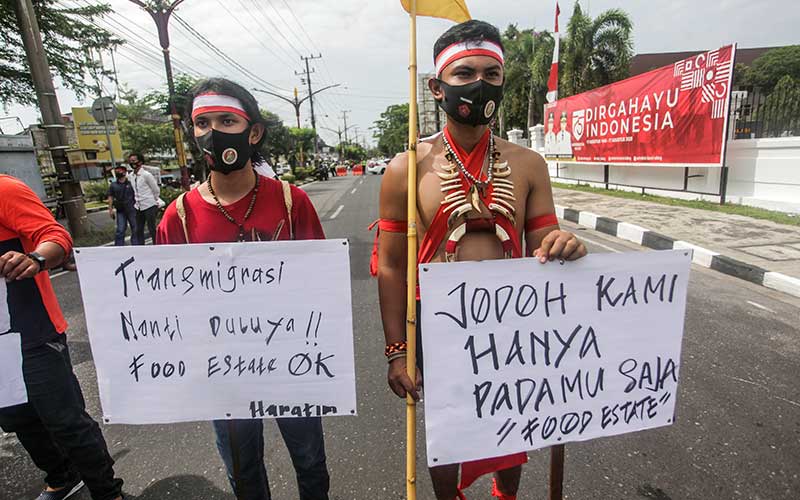 Transmigrasi
Nanti Duluya !!
Food Estate OK
Haratim
JODOH KAMI
HANYA
PADAMU SAJA
"FOOD ESTATE"
DIRGAHAYU
INDONESIA